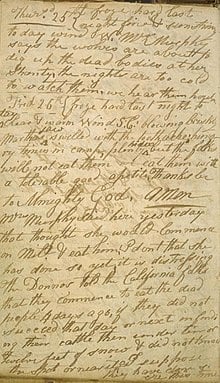 Thursd. 25th froze hard last
night fine & sunshiny
to day wind W. Mrs Murphy
says the wolves are about to
dig up the dead bodies at her
shanty, the nights are too cold
to watch them, we hear them howl
Frid 26th froze hard last night to day
clear & warm Wind S.E. blowing briskly
Marthas jaw swelled with the toothache; hungry
times in camp, plenty hides but the folks
will not eat them we eat them with
a tolerable good apetite. Thanks be
to Almighty God. Amen
Mrs Murphy said here yesterday
that thought she would commence
on Milt. & eat him. I dont that she
has done so yet, it is distressing
The Donnos told the California folks
that they commence to eat the dead
people 4 days ago, if they did not
succeed that day or next in finding
their cattle then under ten or
twelve feet of snow & did not know
the spot or near it, I suppose
they have done so